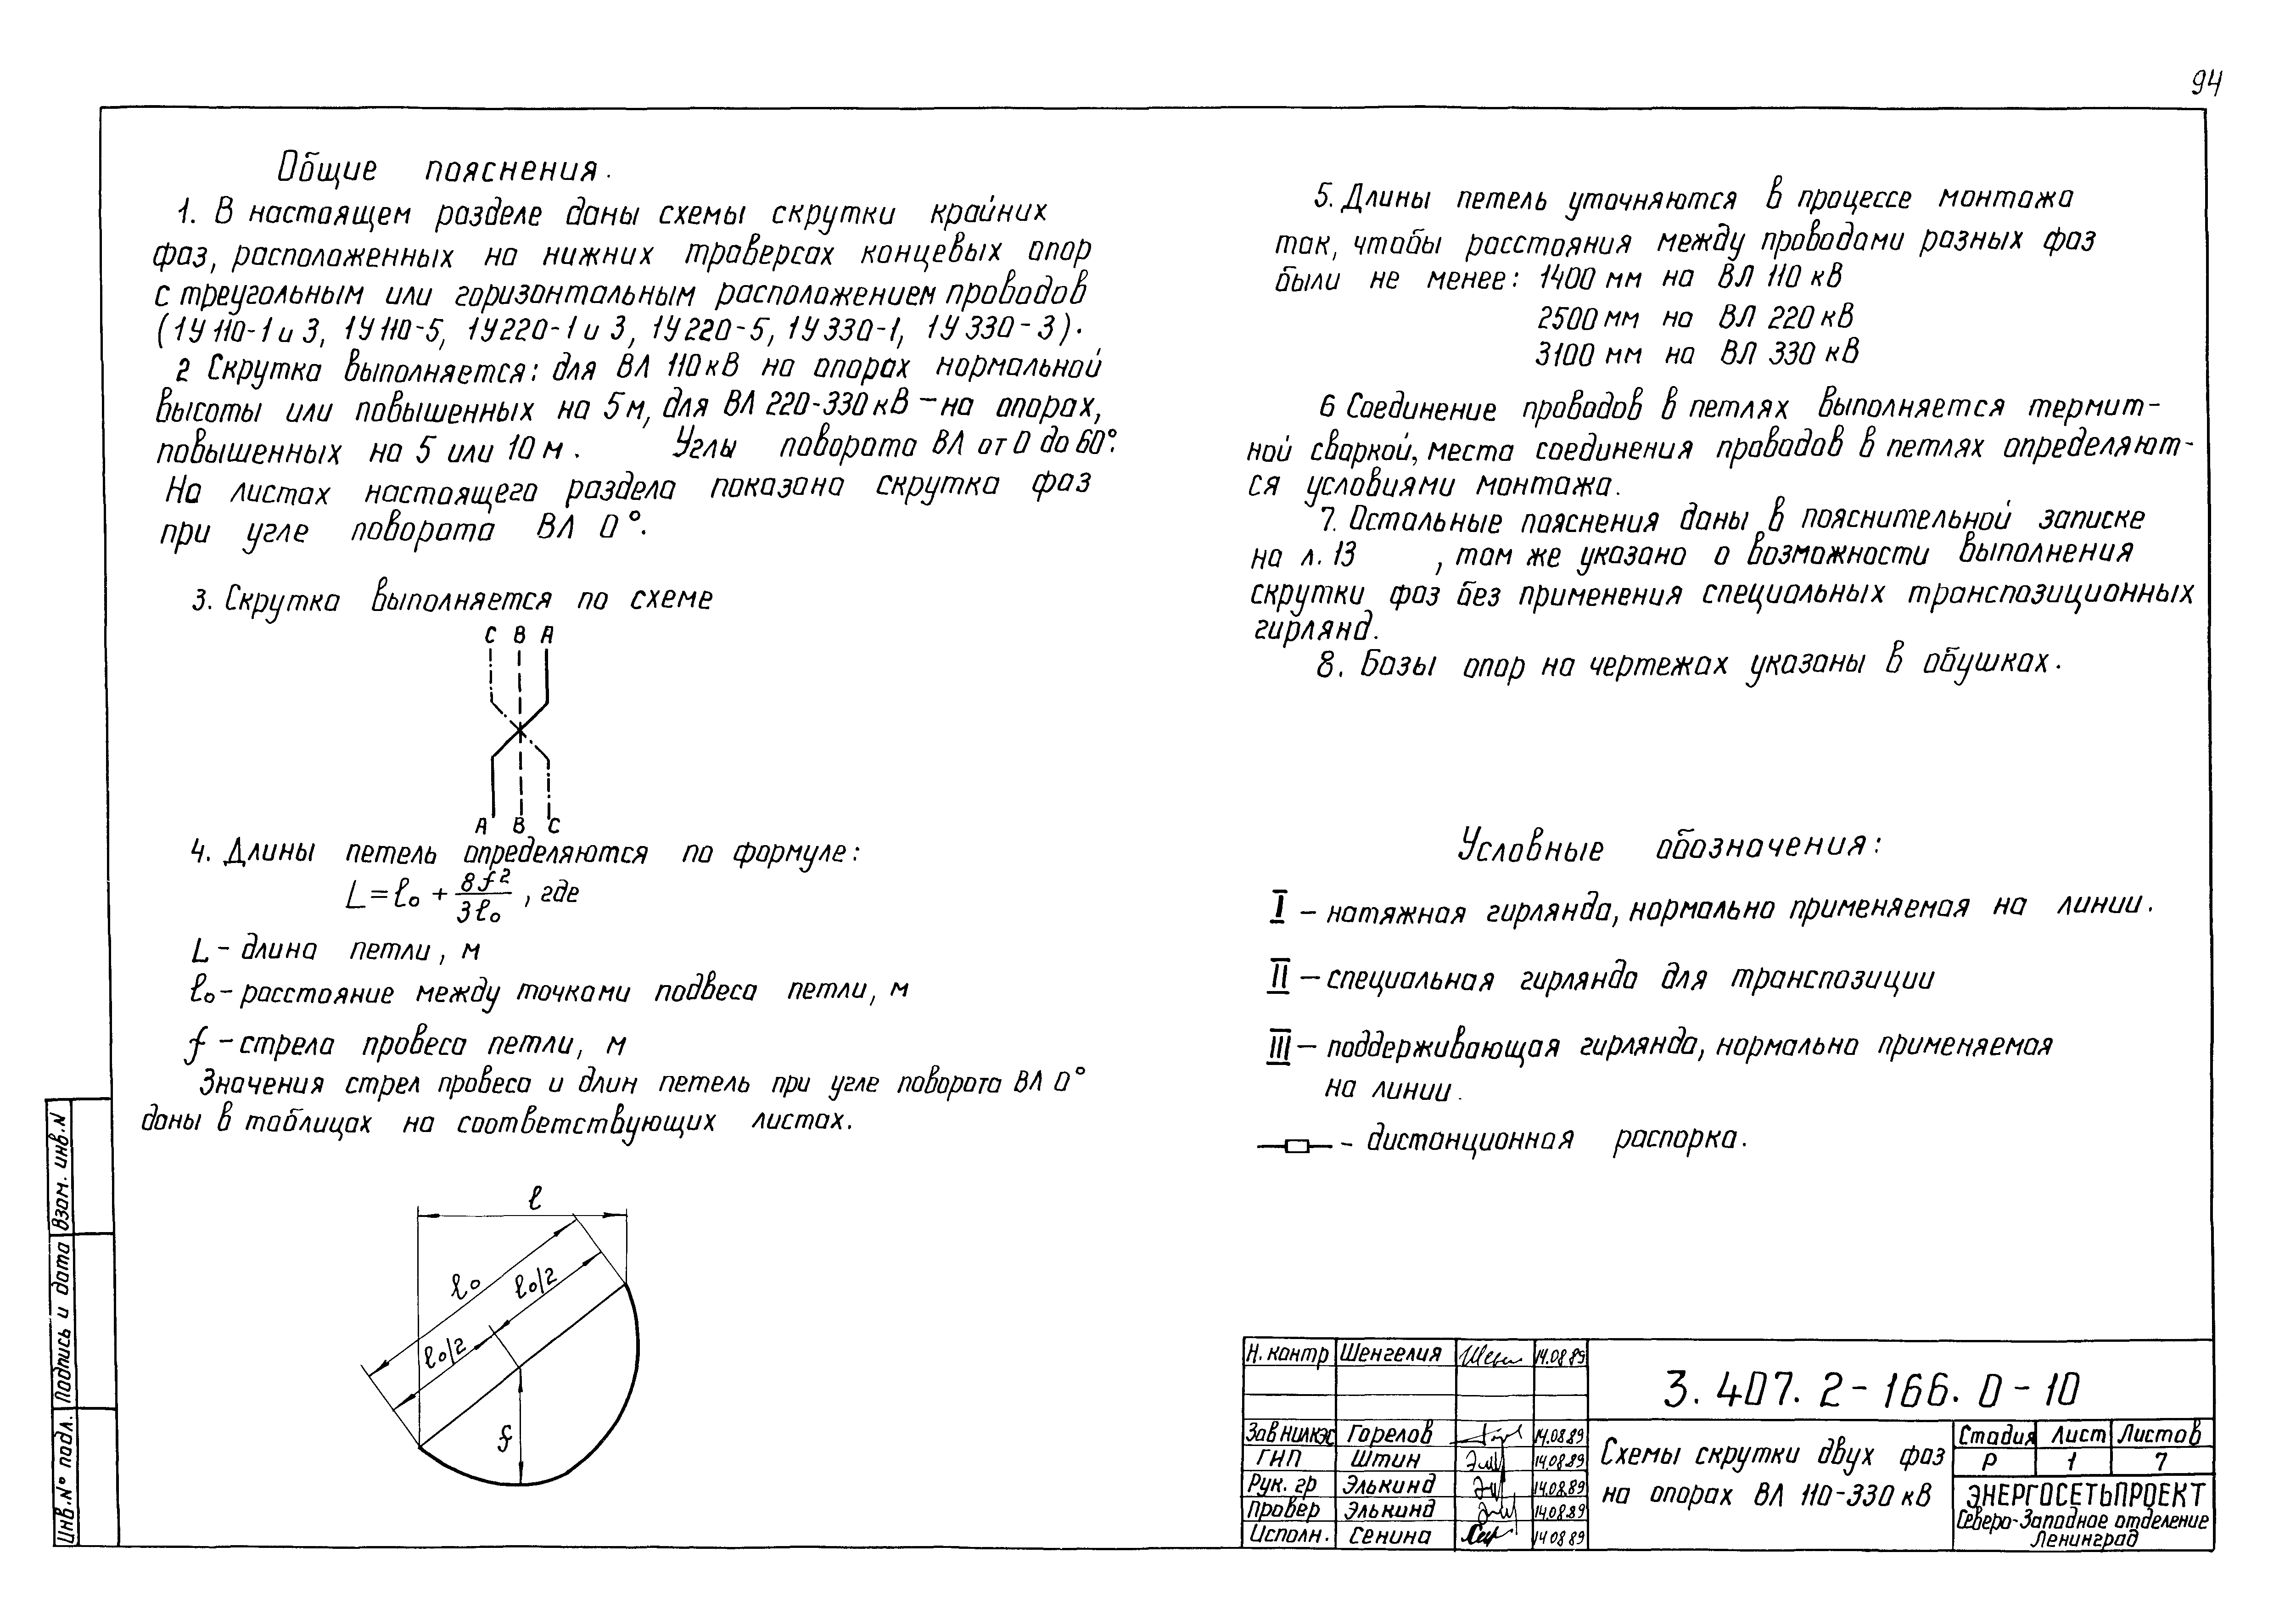 94
Общие пояснения.
1. В настоящем разделе даны схемы скрутки крайних
фаз, расположенных на нижних траверсах концевых опор
с треугольным или горизонтальным расположением проводов
(1У110-1 и 3, 1У110-5, 1У220-1 и 3, 1У220-5, 1У330-1, 1У330-3).
2 Скрутка выполняется: для ВЛ 110 кВ на опорах нормальной
высоты или повышенных на 5 м, для ВЛ 220-330 кВ – на опорах,
повышенных на 5 или 10 м. Углы поворота ВЛ от 0 до 60°.
На листах настоящего раздела показана скрутка фаз
при угле поворота ВЛ 0°.
3. Скрутка выполняется по схеме
C B A
A B C
4. Длины петель определяются по формуле:
L = ℓ₀ + 8f²/3ℓ₀, где
L – длина петли, м
ℓ₀ – расстояние между точками подвеса петли, м
f – стрела провеса петли, м
Значения стрел провеса и длин петель при угле поворота ВЛ 0°
даны в таблицах на соответствующих листах.
ℓ
ℓ₀
ℓ₀/2
ℓ₀/2
f
5. Длины петель уточняются в процессе монтажа
так, чтобы расстояния между проводами разных фаз
были не менее: 1400 мм на ВЛ 110 кВ
2500 мм на ВЛ 220 кВ
3100 мм на ВЛ 330 кВ
6 Соединение проводов в петлях выполняется термит-
ной сваркой, места соединения проводов в петлях определяют-
ся условиями монтажа.
7. Остальные пояснения даны в пояснительной записке
на л. 13 , там же указано о возможности выполнения
скрутки фаз без применения специальных транспозиционных
гирлянд.
8. Базы опор на чертежах указаны в обушках.
Условные обозначения:
I – натяжная гирлянда, нормально применяемая на линии.
II – специальная гирлянда для транспозиции
III – поддерживающая гирлянда, нормально применяемая
на линии.
– дистанционная распорка.
Инв.№ подл. Подпись и дата Взам. инв.N
Н. контр Шенгелия 14.08.89
Зав НИЛКЭС Горелов 14.08.89
ГИП Штин 14.08.89
Рук. гр Элькинд 14.08.89
Провер Элькинд 14.08.89
Исполн. Сенина 14 08 89
3. 407. 2-166. 0-10
Схемы скрутки двух фаз
на опорах ВЛ 110-330 кВ
Стадия Лист Листов
Р 1 7
ЭНЕРГОСЕТЬПРОЕКТ
Северо-Западное отделение
Ленинград